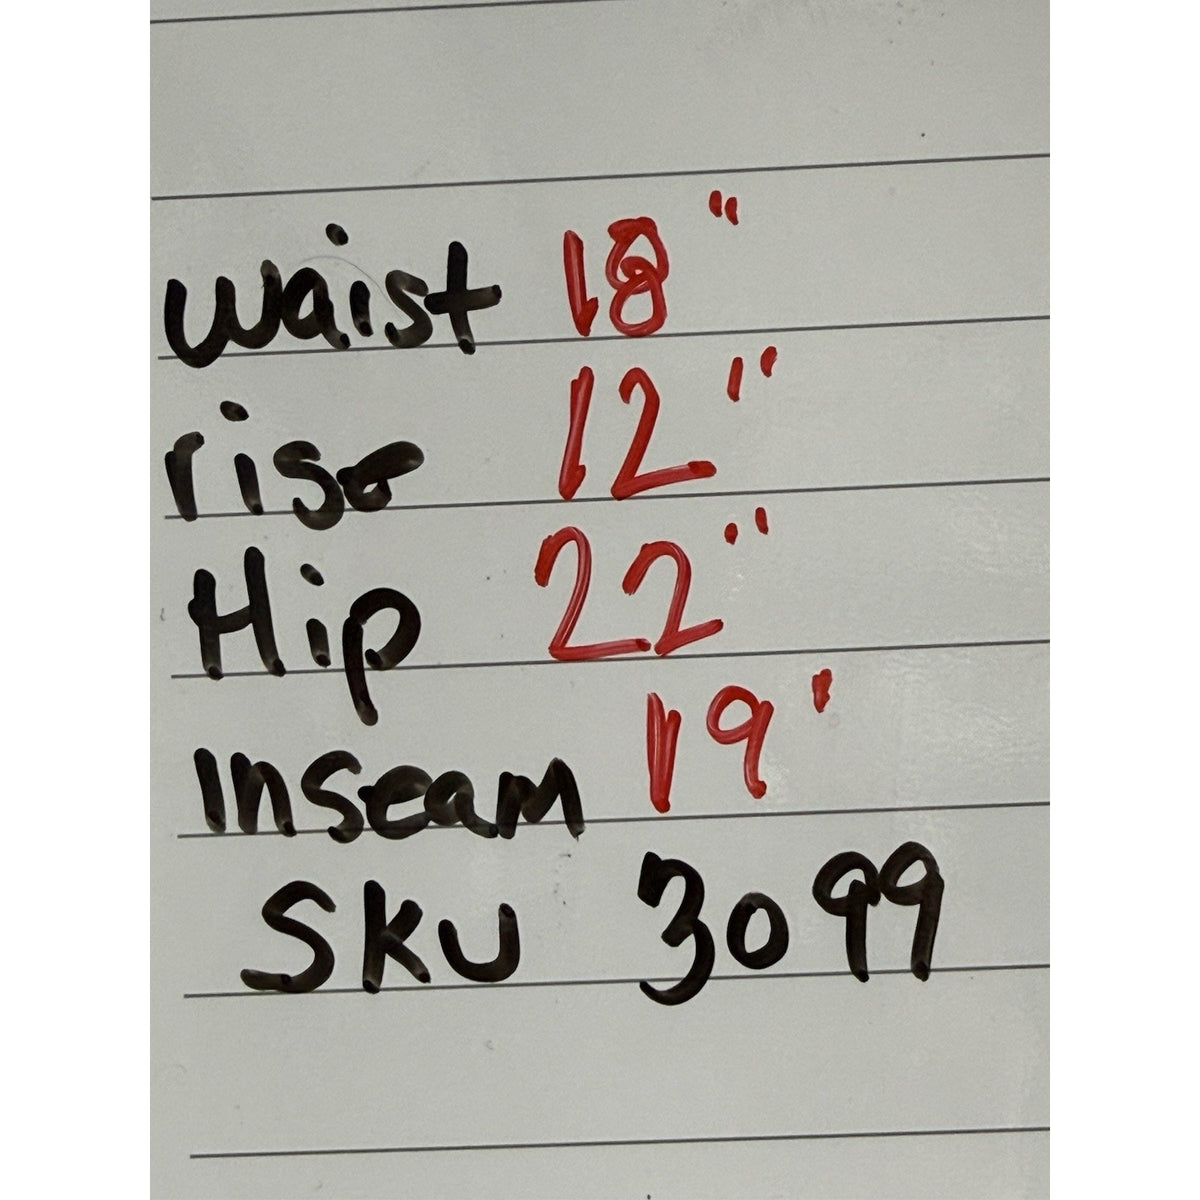 waist 18"
rise 12"
Hip 22"
Inseam 19'
SKU 3099